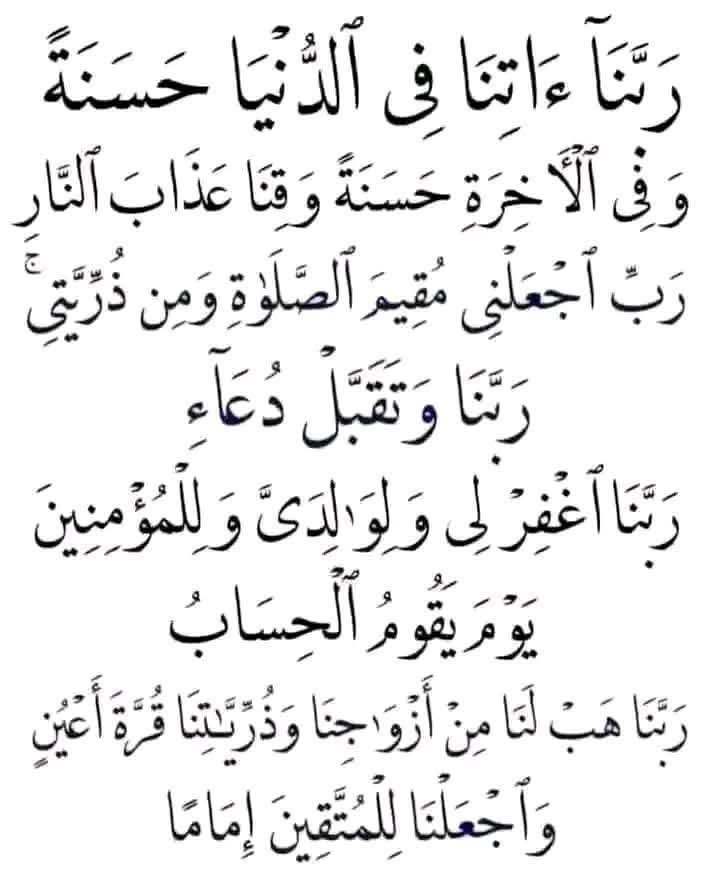 رَبَّنَآ ءَاتِنَا فِى ٱلدُّنْيَا حَسَنَةً
وَفِى ٱلْأَخِرَةِ حَسَنَةً وَقِنَا عَذَابَ ٱلنَّارِ
رَبِّ ٱجْعَلْنِى مُقِيمَ ٱلصَّلَوٰةِ وَمِن ذُرِّيَّتِى ۚ
رَبَّنَا وَتَقَبَّلْ دُعَآءِ
رَبَّنَا ٱغْفِرْ لِى وَلِوَٰلِدَىَّ وَلِلْمُؤْمِنِينَ
يَوْمَ يَقُومُ ٱلْحِسَابُ
رَبَّنَا هَبْ لَنَا مِنْ أَزْوَٰجِنَا وَذُرِّيَّٰتِنَا قُرَّةَ أَعْيُنٍ
وَٱجْعَلْنَا لِلْمُتَّقِينَ إِمَامًا